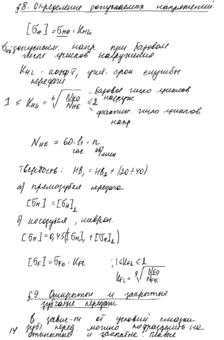 §8. Определение допускаемых напряжений
[σн] = σно · KHL
допускаем. напр. при базовом
числе циклов нагружения
KHL - коэф., учит. срок службы
передачи
базовое число циклов
1 ≤ KHL = ⁶√(NHO/NHE) ≤ 2 нагруж.
число циклов
напр.
NHE = 60 · n
час об/мин
Твердость: HB₁ = HB₂ + (20÷40)
а) прямозубая передача
[σн] = [σн]₂
б) косозубая, шеврон.
[σн] = 0,45([σн]₁ + [σн]₂)
[σF] = σFO · KFL ; 1 ≤ KFL ≤ 2
KFL = ⁶√(NFO/NFE)
§9 Открытые и закрытые
зубчатые передачи
В завис-ти от условий смазки
зубч. перед. можно подразделить на
14 открытые и закрытые